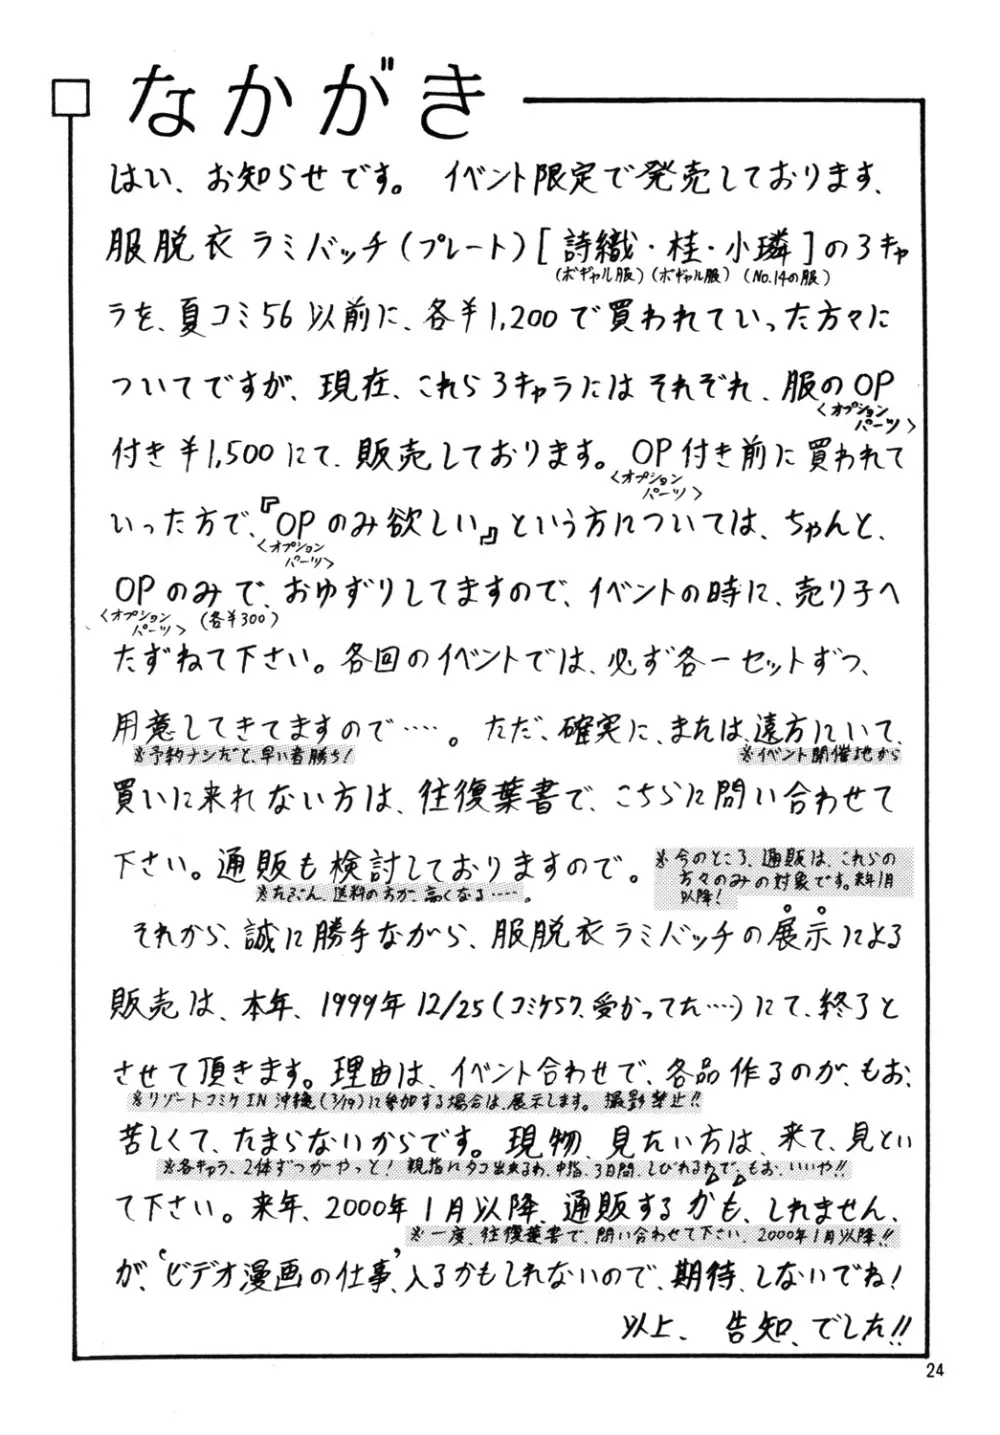 なかがき
はい、お知らせです。 イベント限定で発売しております、
服脱衣ラミバッチ(プレート)[詩織・桂・小璘]の3キャ
(ボギャル服)(ボギャル服)(No.14の服)
ラを、夏コミ56以前に、各¥1,200で買われていった方々に
ついてですが、現在、これら3キャラにはそれぞれ、服のOP
<オプションパーツ>
付き¥1,500にて、販売しております。OP付き前に買われて
<オプションパーツ>
いった方で、『OPのみ欲しい』という方については、ちゃんと、
<オプションパーツ>
OPのみで、おゆずりしてますので、イベントの時に、売り子へ
<オプションパーツ> (各¥300)
たずねて下さい。各回のイベントでは、必ず各一セットずつ、
用意してきてますので‥‥。ただ、確実に、または、遠方にいて、
※予約ナシだと、早い者勝ち! ※イベント開催地から
買いに来れない方は、往復葉書で、こちらに問い合わせて
下さい。通販も検討しておりますので。 ※今のところ、通販は、これらの
方々のみの対象です。来年1月
以降!
※たぶん、送料の方が、高くなる‥‥。
それから、誠に勝手ながら、服脱衣ラミバッチの展示による
販売は、本年、1999年12/25(コミケ57、受かってた‥‥)にて、終了と
させて頂きます。理由は、イベント合わせで、各品作るのが、もお、
※リゾートコミケIN沖縄(3/19)に参加する場合は、展示します。撮影禁止!!
苦しくて、たまらないからです。現物、見たい方は、来て、見とい
※各キャラ、2体ずつがやっと!親指にタコ出来るわ、中指、3日間、しびれるわで、もお、いいや!!
て下さい。来年、2000年1月以降、通販するかも、しれません、
※一度、往復葉書で、問い合わせて下さい、2000年1月以降!!
が、'ビデオ漫画の仕事'、入るかもしれないので、期待、しないでね!
以上、告知、でした!!
24